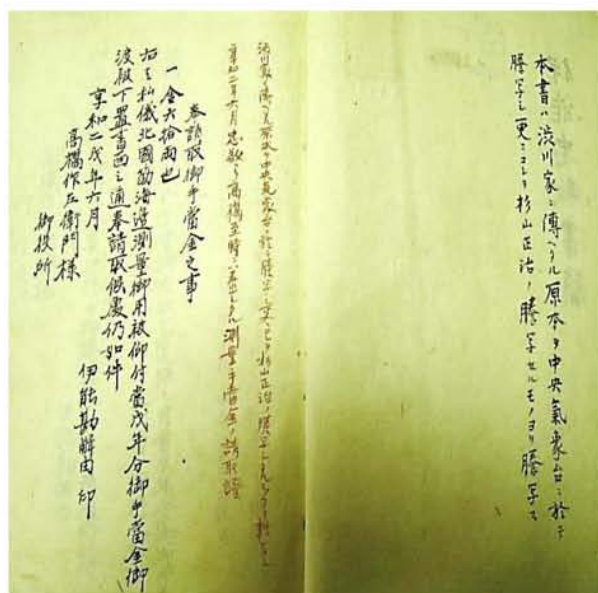 本書ハ渋川家ニ傳ヘタル原本ヲ中央氣象台ニ於テ
謄写シ更ニコレヲ杉山正治ノ謄写セルモノヨリ謄写ス
渋川家ニ傳ヘタル原本ヲ中央氣象台ニ於テ謄写シ
杉山正治ノ謄写
享和二年六月忠敬ヨリ高橋至時ヘ差出シタル測量手當金ノ請取証
奉請取御手當金之事
一金六拾両也
右是私儀北國筋海邉測量御用被仰付當戌年分御手當金御
渡被下置書面之通奉請取候處仍如件
享和二戌年六月
伊能勘解由 印
高橋作左衛門様
御役所